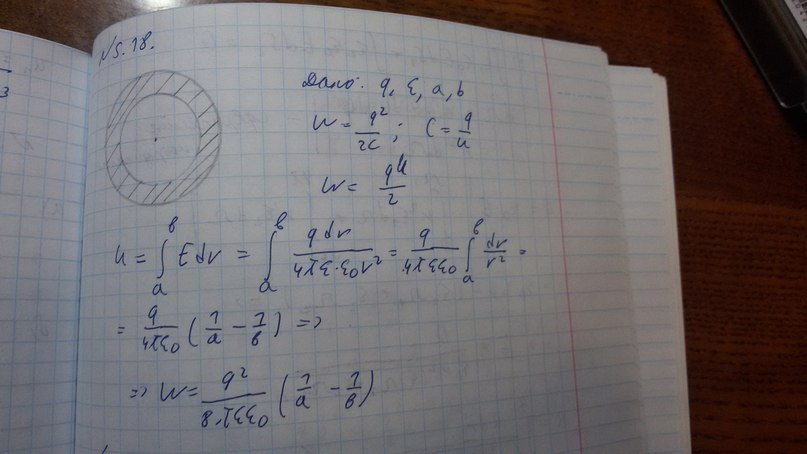 №5.18.
Дано: q, ε, a, b
W = q²/2C ; C = q/U
W = qU/2
U = ∫ₐᵇ E dr = ∫ₐᵇ q dr/(4πε·ε₀r²) = q/(4πεε₀) ∫ₐᵇ dr/r² =
= q/(4πεε₀) (1/a − 1/b) =>
=> W = q²/(8·πεε₀) (1/a − 1/b)